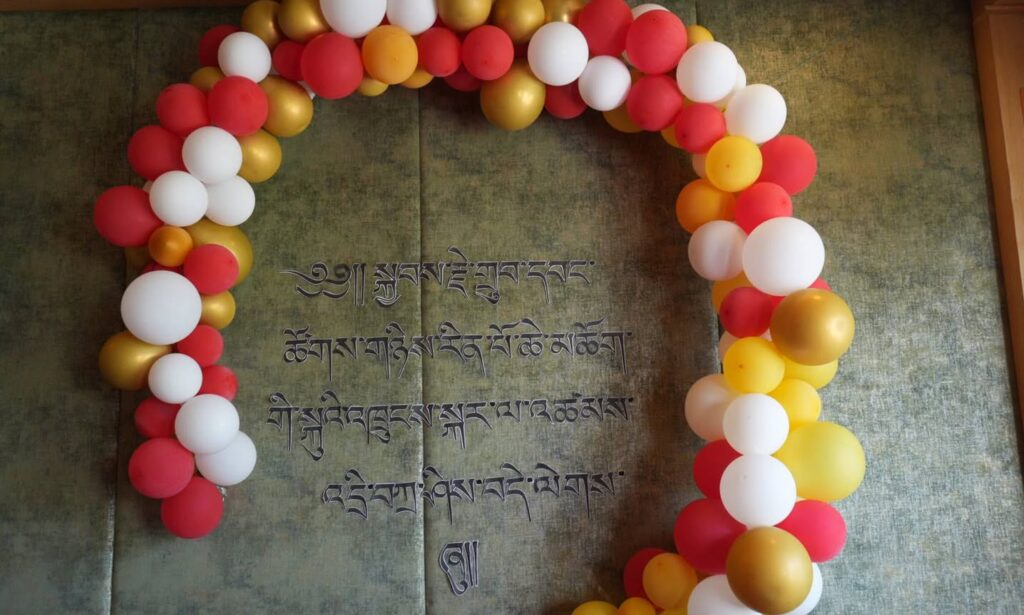 ༄༅།། སྐྱབས་རྗེ་གྲུབ་དབང་
ཚོགས་གཉིས་རིན་པོ་ཆེ་མཆོག་
གི་སྐུའི་འཁྲུངས་སྐར་ལ་འཚམས་
འདྲི་བཀྲ་ཤིས་བདེ་ལེགས་
ཞུ།།